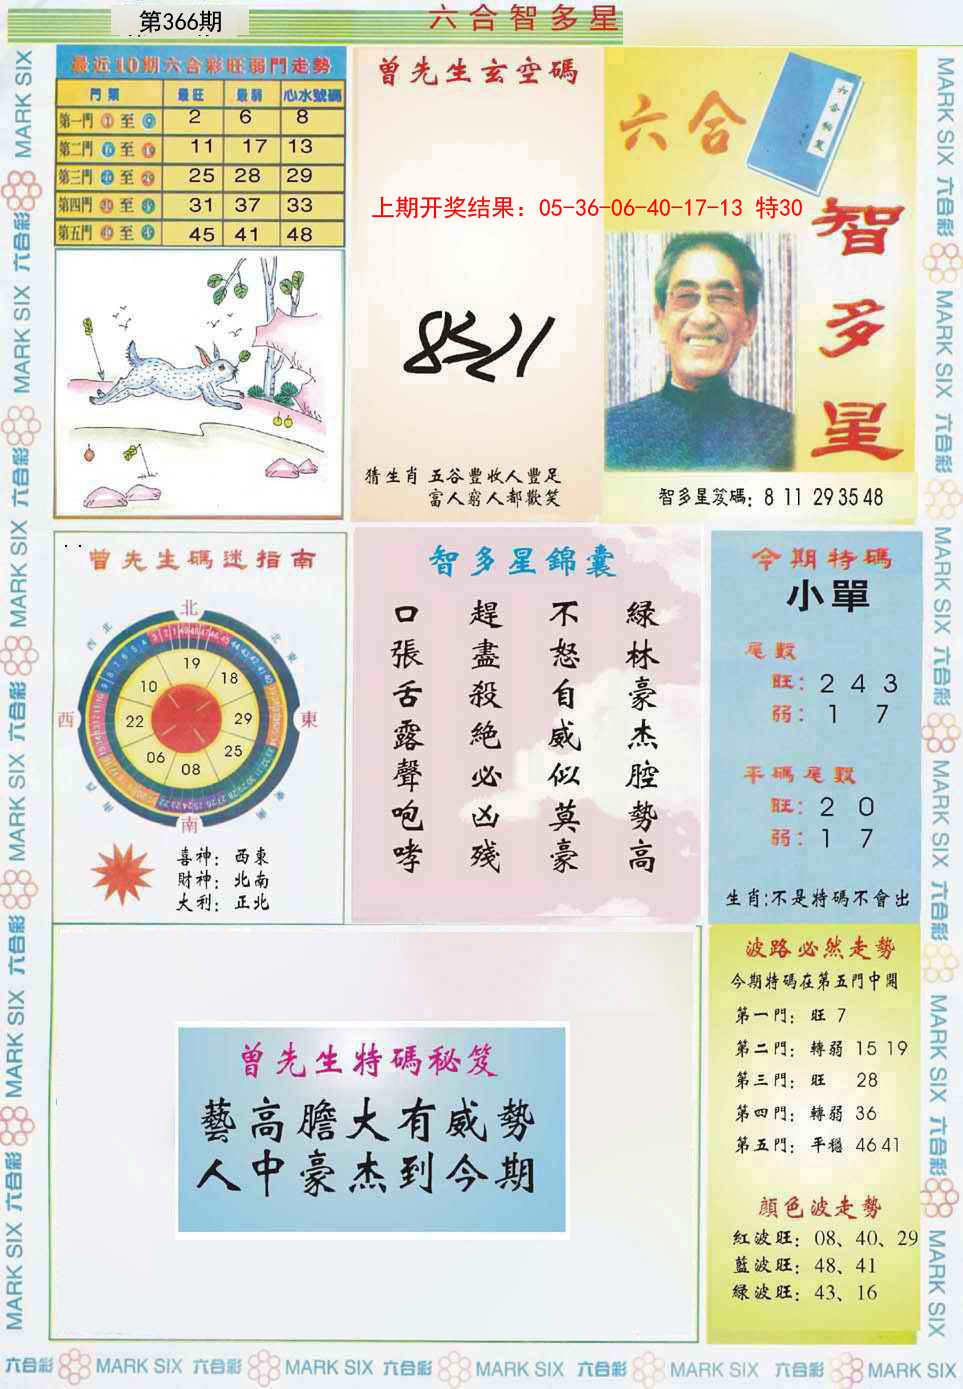 第366期
六合智多星
最近10期六合彩旺弱門走勢
門類 最旺 最弱 心水號碼
第一門 至 2 6 8
第二門 至 11 17 13
第三門 至 25 28 29
第四門 至 31 37 33
第五門 至 45 41 48
曾先生玄空碼
猜生肖 五谷豐收人豐足
富人窮人都歡笑
六合
智多星
上期开奖结果：05-36-06-40-17-13 特30
智多星笈碼：8 11 29 35 48
曾先生碼迷指南
北
東
南
西
19
18
29
25
08
06
22
10
喜神：西東
財神：北南
大利：正北
智多星錦囊
綠林豪杰腔勢高
不怒自威似莫豪
趕盡殺絕必凶殘
口張舌露聲咆哮
今期特碼
小單
尾數
旺：2 4 3
弱：1 7
平碼尾數
旺：2 0
弱：1 7
生肖：不是特碼不會出
曾先生特碼秘笈
藝高膽大有威勢
人中豪杰到今期
波路必然走勢
今期特碼在第五門中開
第一門：旺 7
第二門：轉弱 15 19
第三門：旺 28
第四門：轉弱 36
第五門：平穩 46 41
顏色波走勢
紅波旺：08、40、29
藍波旺：48、41
綠波旺：43、16
六合彩 MARK SIX 六合彩 MARK SIX 六合彩 MARK SIX 六合彩 MARK SIX 六合彩 MARK SIX